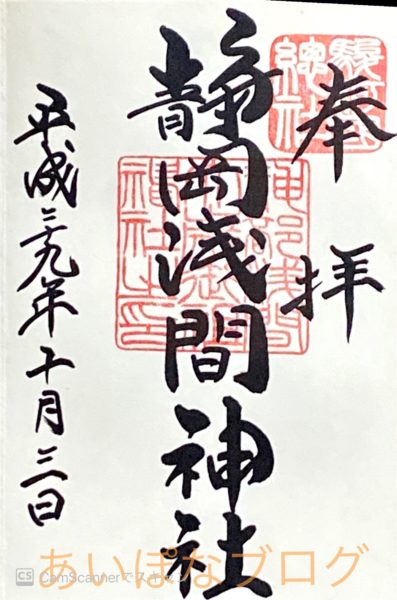 奉拝
駿河國總社
静岡浅間神社
平成二十九年十月三日
CS CamScannerでスキ
あいぽなブログ